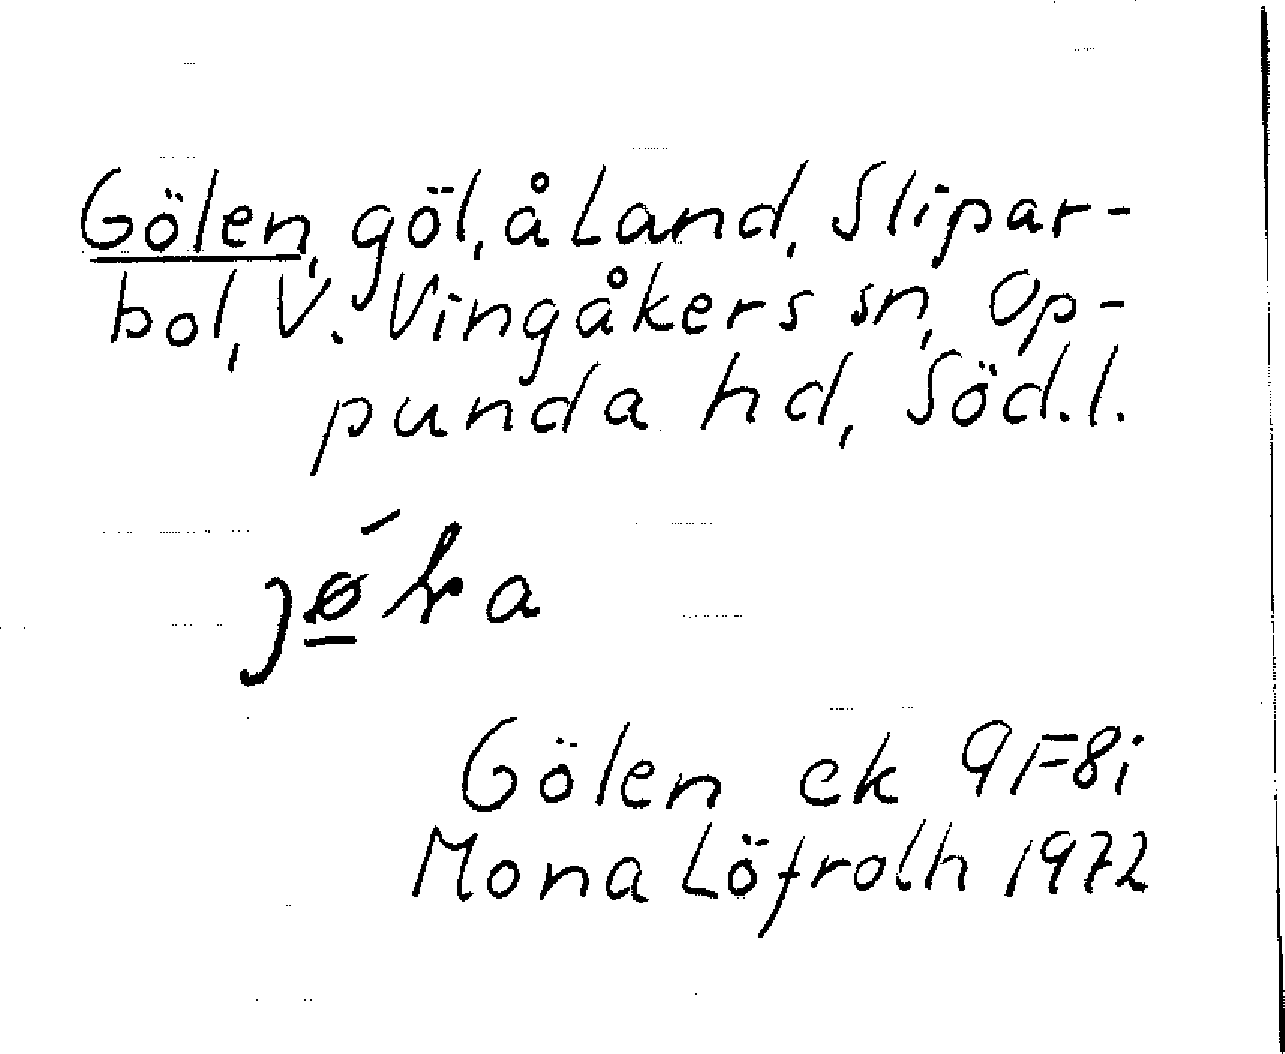 Gölen, göl, å Land, Slipar-
bol, V. Vingåkers sn, Op-
punda hd, Söd.l.
Gölen ek 9F8i
Mona Löfroth 1972